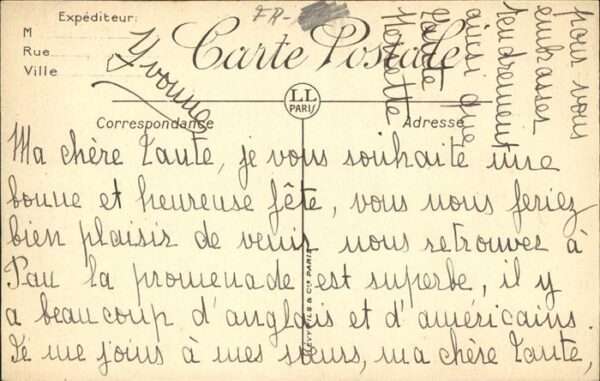 Expéditeur:
M
Rue
Ville
FR-
Carte Postale
LL
PARIS
Correspondance
Adresse
LEVY FILS & Cie PARIS
Ma chère Tante, je vous souhaite une
bonne et heureuse fête, vous nous feriez
bien plaisir de venir nous retrouver à
Pau la promenade est superbe, il y
a beaucoup d'anglais et d'américains.
Je me joins à mes sœurs, ma chère Tante,
pour vous
embrasser
tendrement
ainsi que
Tante
Henriette
Yvonne